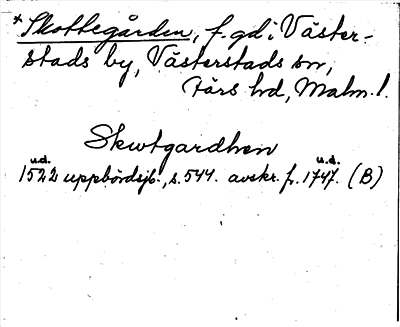 * Skottegården, f. gd i Väster-
stads by, Västerstads sn,
Färs hd, Malm. l.
Skwtgardhen
u.d. u.d.
1522 uppbördsjb., s. 544. avskr. fr. 1747. (B)